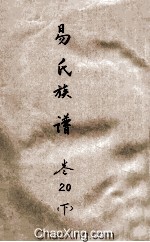 易氏族谱
卷
20
(下)
ChaoXing.com